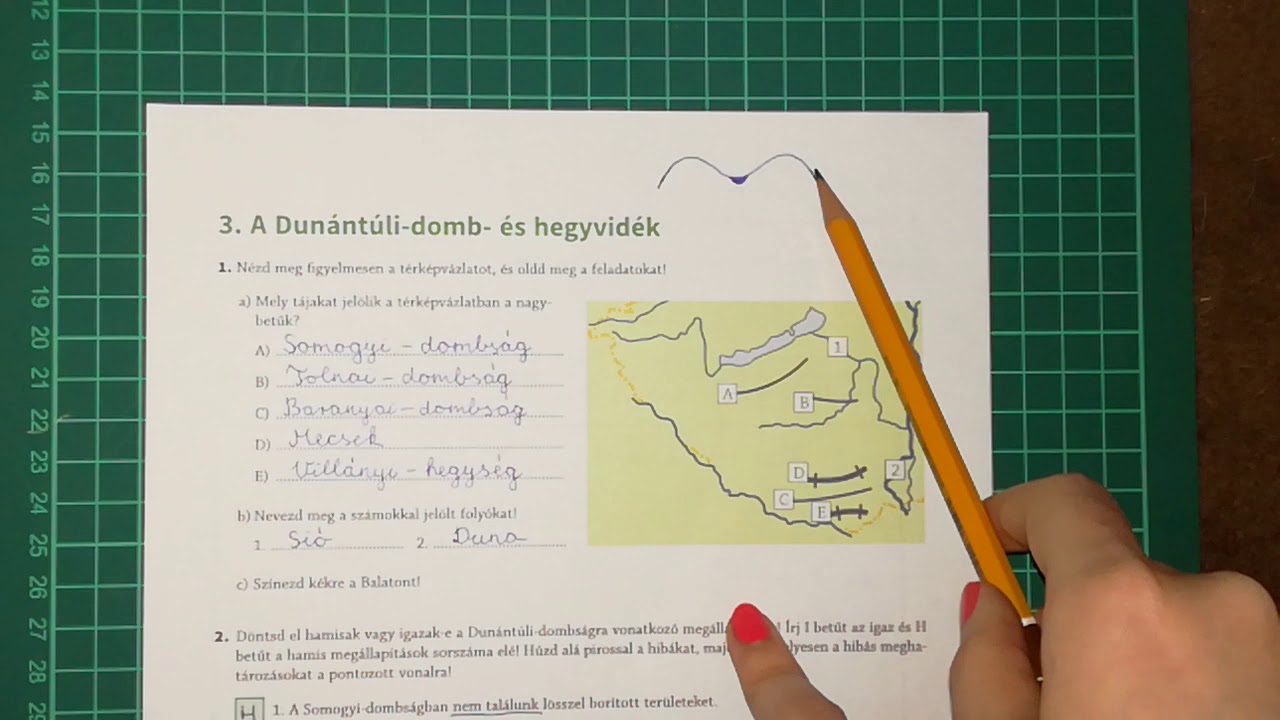 12
13
14
15
16
17
18
19
20
21
22
23
24
25
26
27
28
29
3. A Dunántúli-domb- és hegyvidék
1. Nézd meg figyelmesen a térképvázlatot, és oldd meg a feladatokat!
a) Mely tájakat jelölik a térképvázlatban a nagy-
betűk?
A) Somogyi - dombság
B) Tolnai - dombság
C) Baranyai - dombság
D) Mecsek
E) Villányi - hegység
b) Nevezd meg a számokkal jelölt folyókat!
1. Sió 2. Duna
c) Színezd kékre a Balatont!
1
A
B
D
2
C
E
2. Döntsd el hamisak vagy igazak-e a Dunántúli-dombságra vonatkozó ! Írj I betűt az igaz és H
betűt a hamis megállapítások sorszáma elé! Húzd alá pirossal a hibákat, a hibás megha-
tározásokat a pontozott vonalra!
H 1. A Somogyi-dombságban nem találunk lösszel borított területeket.